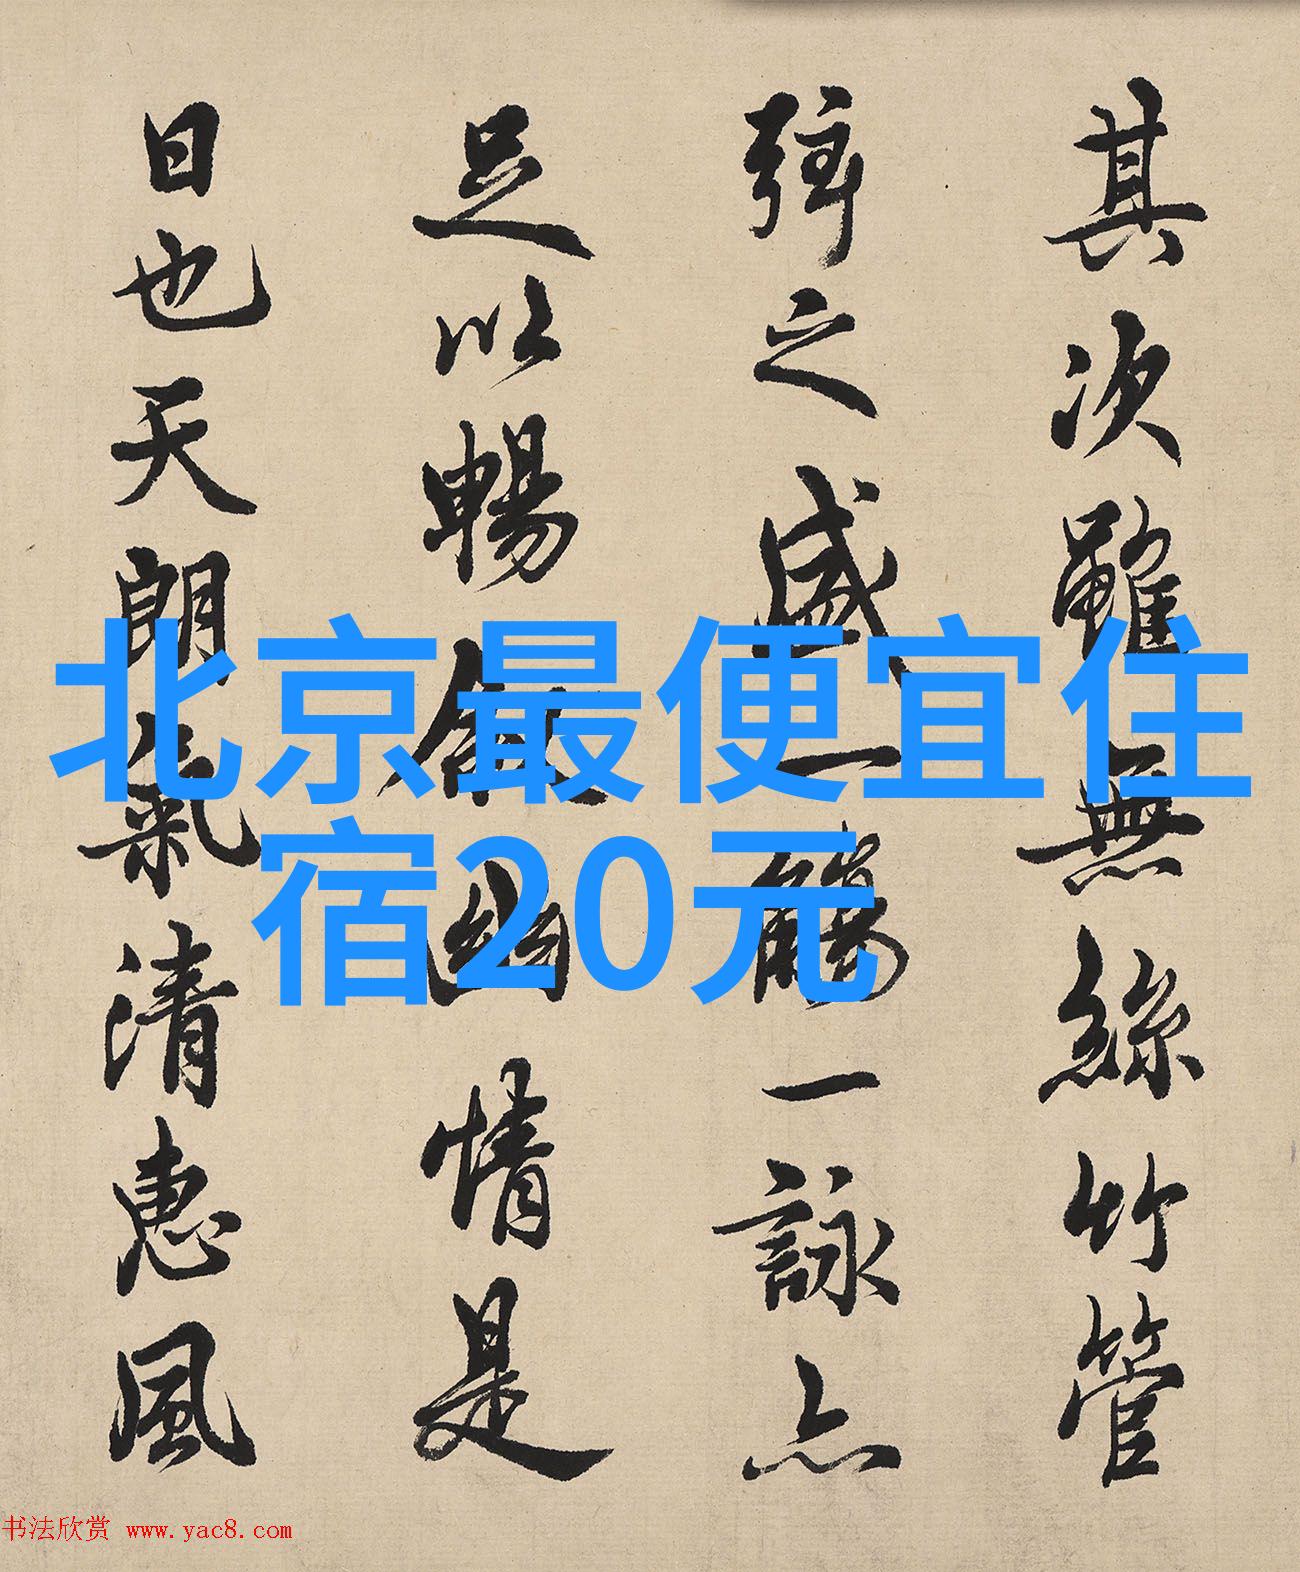 其次雖無絲竹管
弦之盛一觴一詠亦
足以暢敘幽情是
日也天朗氣清惠風
北京最便宜住
宿20元
书法欣赏 www.yac8.com